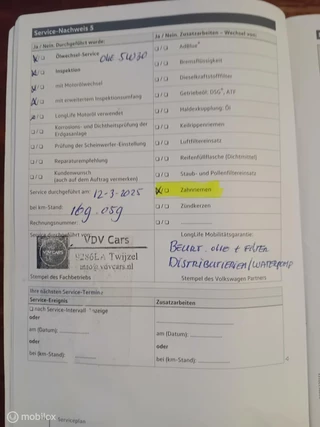 Service-Nachweis 5
Ja / Nein, Durchgeführt wurde:
Ja / Nein, Zusatzarbeiten – Wechsel von:
Ölwechsel-Service olie 5W30
Inspektion
mit Motorölwechsel
mit erweitertem Inspektionsumfang
LongLife Motoröl verwendet
Korrosions- und Dichtheitsprüfung der
Erdgasanlage
Prüfung der Scheinwerfer-Einstellung
Reparaturempfehlung
Kundenwunsch
(auch auf dem Auftrag vermerken)
AdBlue®
Bremsflüssigkeit
Dieselkraftstofffilter
Getriebeöl: DSG®, ATF
Haldexkupplung: Öl
Keilrippenriemen
Luftfiltereinsatz
Reifenfüllflasche (Dichtmittel)
Staub- und Pollenfiltereinsatz
Zahnriemen
Zündkerzen
Service durchgeführt am: 12-3-2025
bei km-Stand: 169.059
Rechnungsnummer:
Service durchgeführt von:
VDV Cars
9286LA Twijzel
info@vdvcars.nl
Stempel des Fachbetriebs
LongLife Mobilitätsgarantie:
BEURT. OLIE + FILTER
DISTRIBUTIERIEM/WATERPOMP
Stempel des Volkswagen Partners
Ihre nächsten Service-Termine
Service-Ereignis
Zusatzarbeiten
nach Service-Intervall-Anzeige
oder
am (Datum)
oder
bei (km-Stand):
am (Datum):
oder
bei (km-Stand):
Serviceplan
mobilox